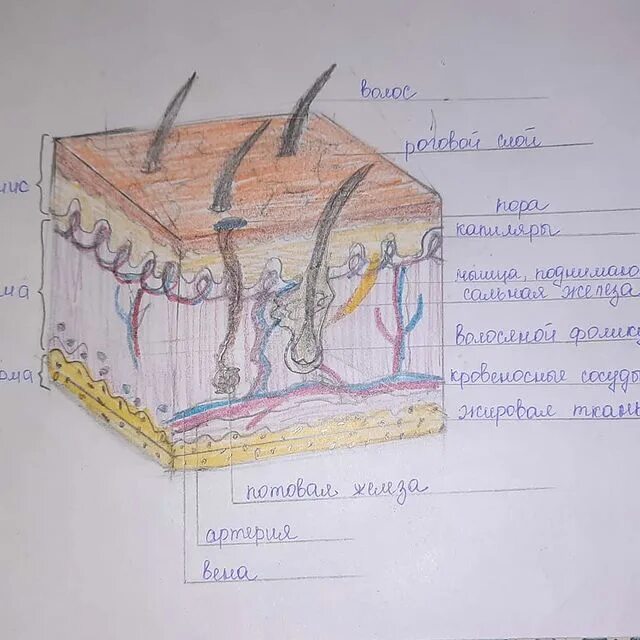 волос
роговой слой
пора
капиляры
мышца, поднимаю
сальная железа
волосяной фоллику
кровеносные сосуды
жировая ткань
потовая железа
артерия
вена